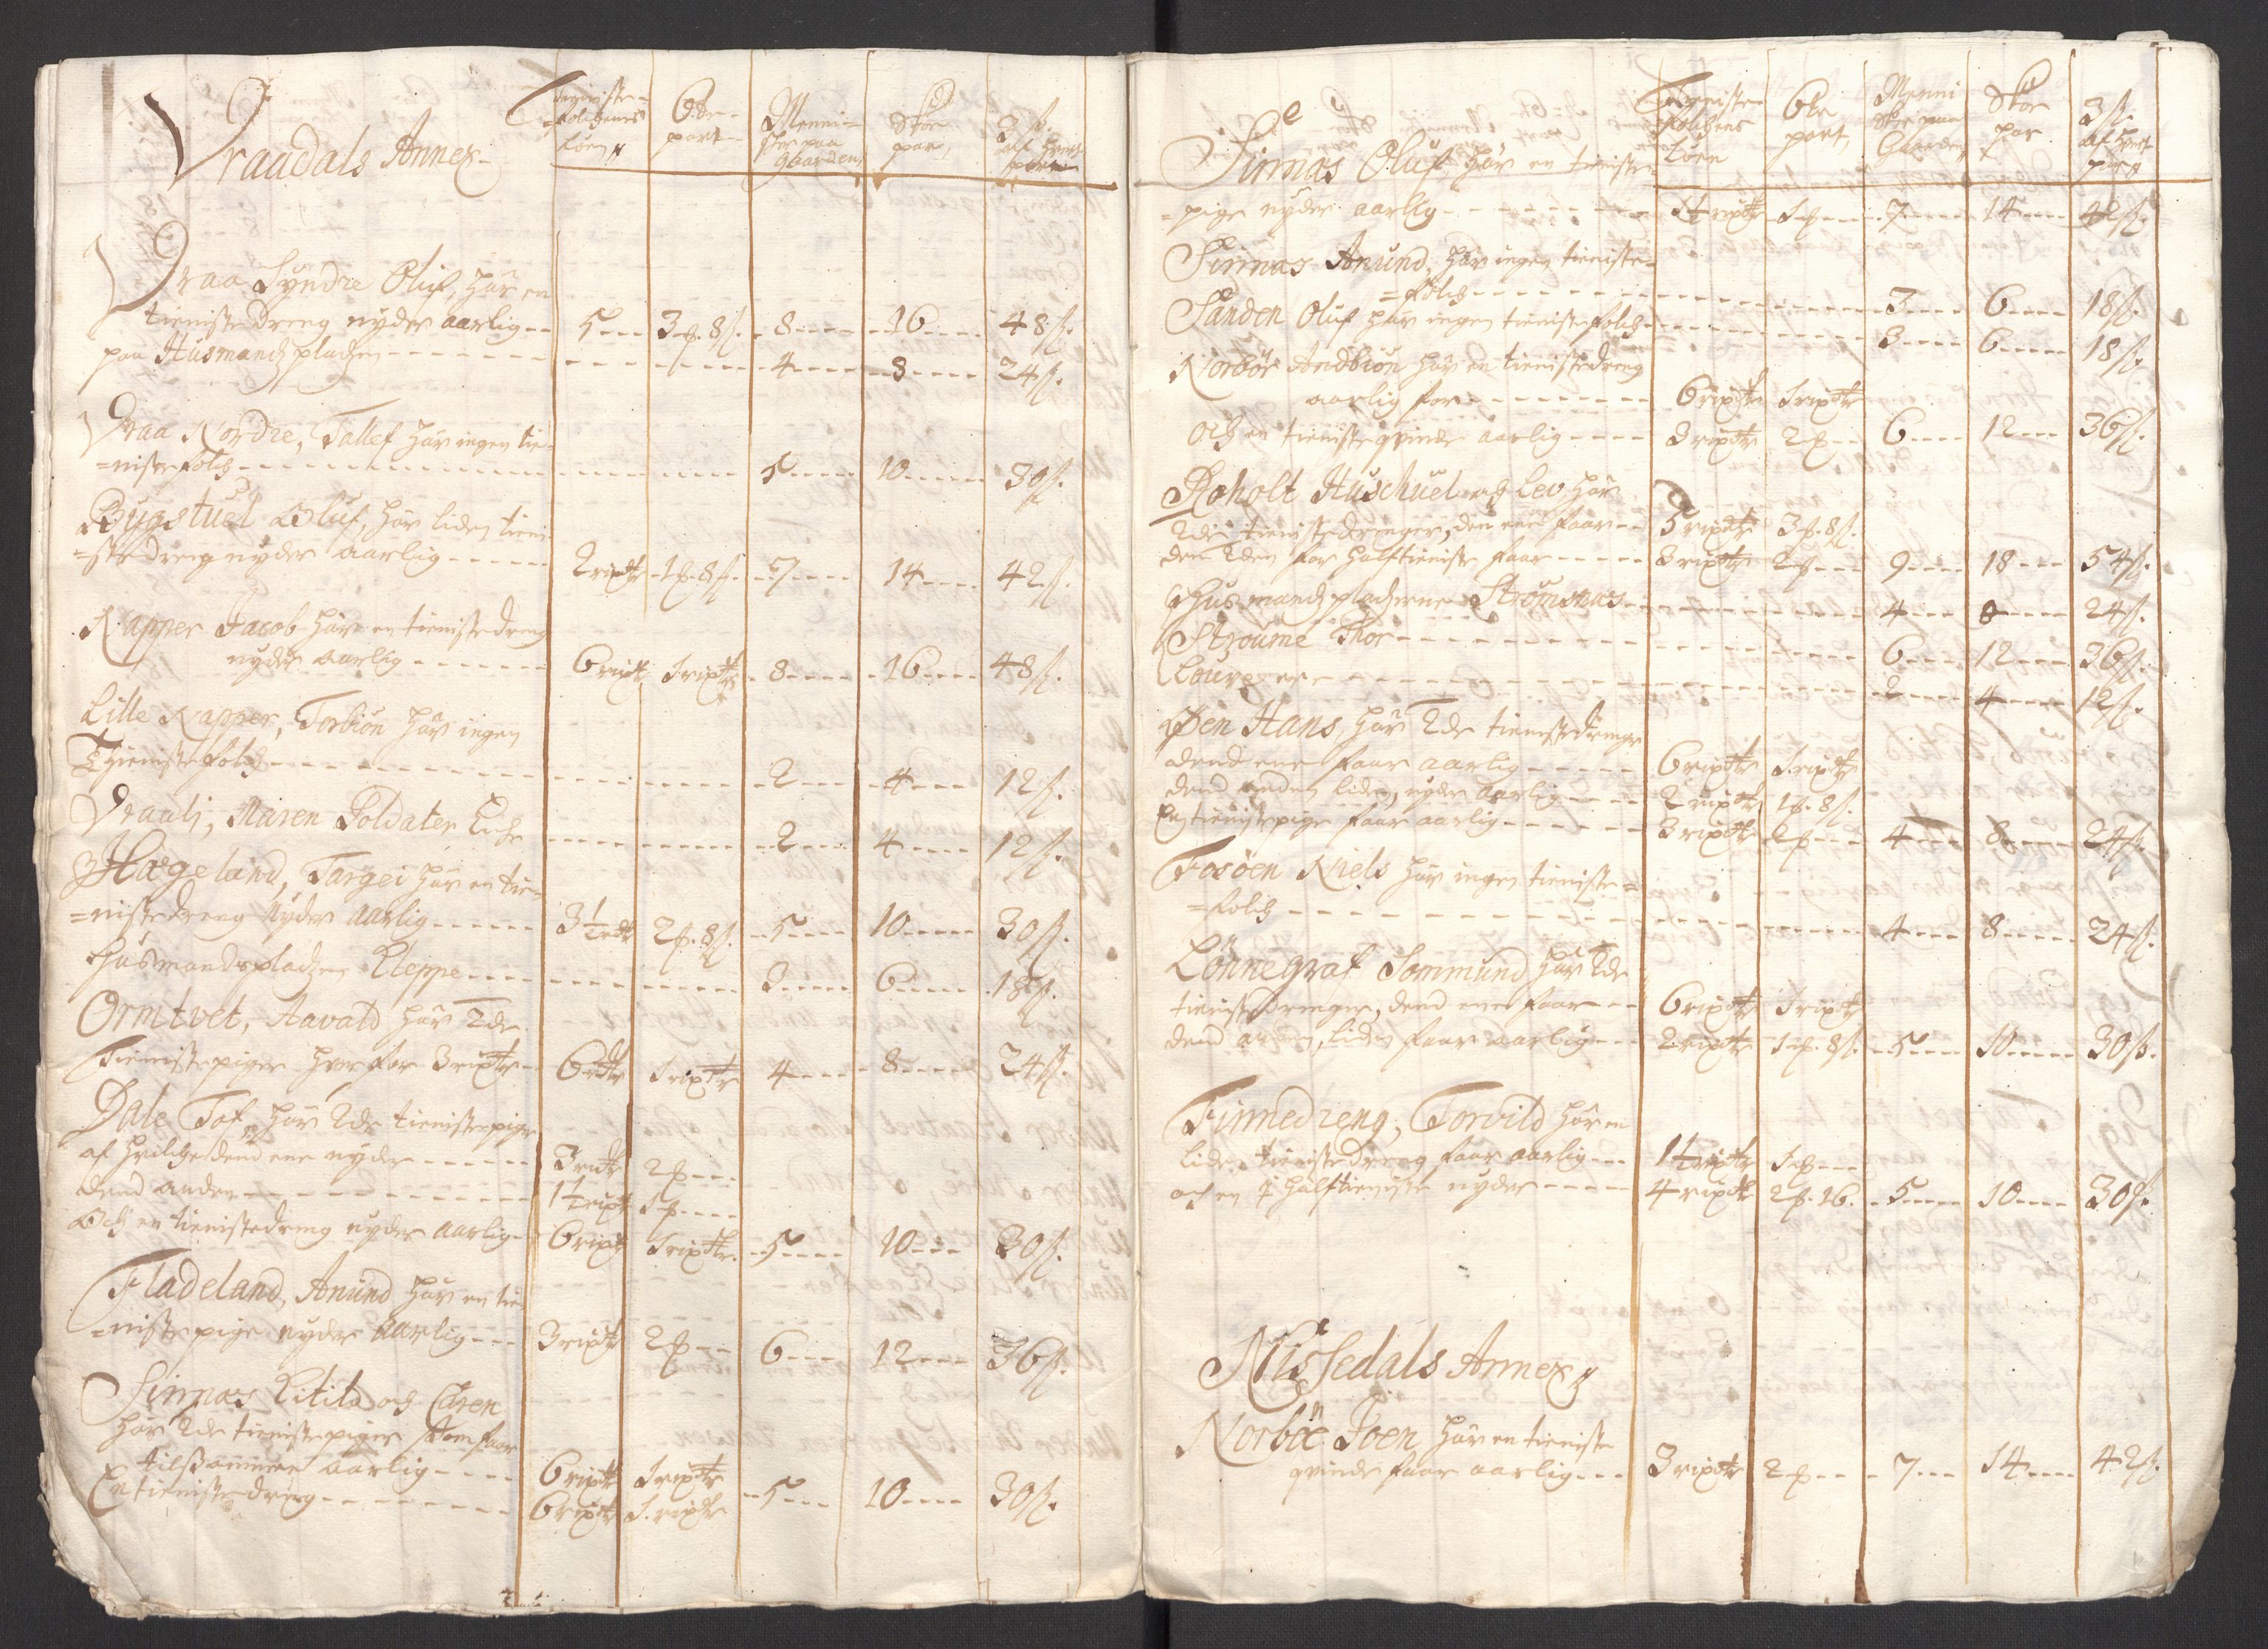 Vraadals Annex
Tieniste-
folchenes
Løen
6te
part
Menni-
sker paa
gaarden
Skoe
par
3 ß.
af hvert
par
Vraa Syndre Oluf, har en
tienistedreng nyder aarlig -- 5 -- 3 8ß. 8 -- 16 -- 48ß.
paa Husmandz pladzen -- 4 -- 8 -- 24ß.
Vraa Nordre, Tallef har ingen tie-
=nistefolch -- 5 -- 10 -- 30ß
Bygstuel Oluf, har liden tieni-
=ste dreng nyder aarlig -- 2 rixdtr 1 8ß. 7 -- 14 -- 42ß.
Napper Jacob har en tienistedreng
nyder aarlig -- 6 rixdtr 1 rixdtr 8 -- 16 -- 48ß.
Lille Napper, Torbiøn har ingen
Thienistefolch -- 2 -- 4 -- 12ß.
Vraali, Maren Soldater Enche -- 2 -- 4 -- 12ß.
Hægeland, Targei har en tie-
=nistedreng nyder aarlig -- 3½ rdr 2 8ß. 5 -- 10 -- 30ß.
Husmandspladzen Kleppe -- 3 -- 6 -- 18ß.
Ormtvet, Aavald har 2de
Tienistepiger hver for 3 rixdtr 6 rdr 1 rixdtr 4 -- 8 -- 24ß.
Dale Tof, har 2de tienistepiger
af hvilche dend ene nyder -- 3 rdr 2
dend anden -- 1½ rixdtr 1
Och en tienistedreng nyder aarlig 6 rixdtr 1 rixdtr 5 -- 10 -- 30ß.
Fladeland, Anund har en tie-
=nistepige nyder aarlig -- 3 rixdtr 2 -- 6 -- 12 -- 36ß.
Sinnas Kitild och Caren
har 2de tienistepiger som faar
tilsammen aarlig -- 6 rixdtr 1 rixdtr
En tienistedreng -- 6 rixdtr 1 rixdtr 5 -- 10 -- 30ß.
Tieniste
folchens
Løen
6te
part
Menni
sker paa
Gaarden
Skoe
par
3ß.
af hvert
par
Sinnas Oluf har en tieniste
=pige nyder aarlig -- 1½ rixdtr 1 -- 7 -- 14 -- 42ß.
Sinnas Anund, har ingen tieniste-
=folch -- 3 -- 6 -- 18ß.
Sanden Oluf har ingen tienistefolch -- 3 -- 6 -- 18ß.
Norbøe Andbiøn har en tienistedreng
aarlig for -- 6 rixdtr 1 rixdtr
och en tienisteqvinde aarlig -- 3 rixdtr 2 -- 6 -- 12 -- 36ß.
Roholt Huschuel och Lev har
2de tienistedrenger, den ene faar -- 5 rixdtr 3 8ß.
den 2den for halftieniste faar -- 3 rixdtr 2 -- 9 -- 18 -- 54ß.
Husmandzpladzerne Strømsnas -- 4 -- 8 -- 24ß.
Stroume Thor -- 6 -- 12 -- 36ß.
-- 2 -- 4 -- 12ß.
Øen Hans, har 2de tienistedrenge
dend ene faar aarlig -- 6 rixdtr 1 rixdtr
dend anden liden, nyder aarlig -- 2 rixdtr 1 8ß.
En tienistepige faar aarlig -- 3 rixdtr 2 -- 4 -- 8 -- 24ß.
Fosøen Niels har ingen tieniste=
=folch -- 4 -- 8 -- 24ß.
Lønnegraf Sommund har 2de
tienistedrenger, dend ene faar -- 6 rixdtr 1 rixdtr
dend anden, liden faar aarlig -- 2 rixdtr 1 8ß. 5 -- 10 -- 30ß.
Finnedreng, Torvild har en
liden tienistedreng faar aarlig -- 1½ rixdtr 1
och en halftieniste nyder -- 4 rixdtr 2 16. 5 -- 10 -- 30ß.
Nissedals Annex
Norbøe Joen har en tieniste
qvinde faar aarlig -- 3 rixdtr 2 -- 7 -- 14 -- 42ß.